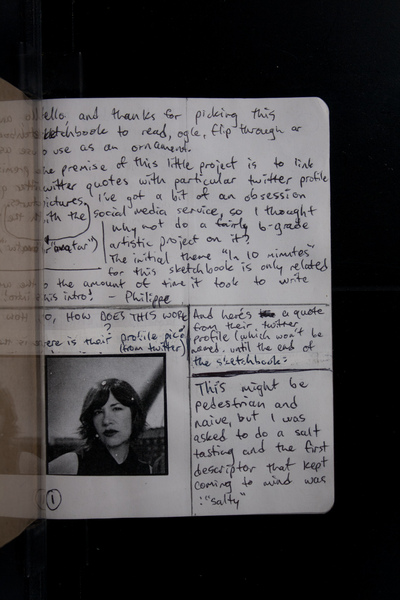 Hello, and thanks for picking this
sketchbook to read, ogle, flip through or
use as an ornament.
The premise of this little project is to link
twitter quotes with particular twitter profile
pictures. I've got a bit of an obsession
with the social media service, so I thought
why not do a fairly b-grade
("avatar")
artistic project on it?
The initial theme "In 10 minutes"
for this sketchbook is only related
to the amount of time it took to write
this intro! - Philippe
SO, HOW DOES THIS WORK
?
Here is their profile pic:
(from twitter)
And here's a quote
from their twitter
profile (which won't be
named until the end of
the sketchbook:
This might be
pedestrian and
naive, but I was
asked to do a salt
tasting and the first
descriptor that kept
coming to mind was
: "salty"
1